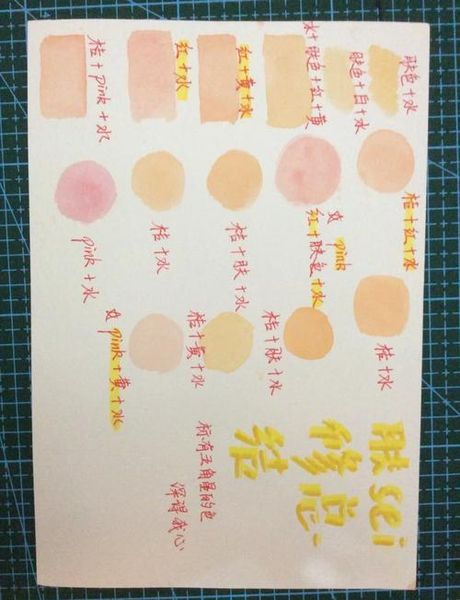 肤sei
修总-
结
肤色+水
肤色+白+水
水+肤色+红+黄
红+黄+水
红+水
桔+pink+水
桔+红+水
pink
红+肤色+水
桔+肤+水
桔+水
pink+水
桔+水
桔+肤+水
桔+黄+水
pink+黄+水
标有五角星的色
深得我心